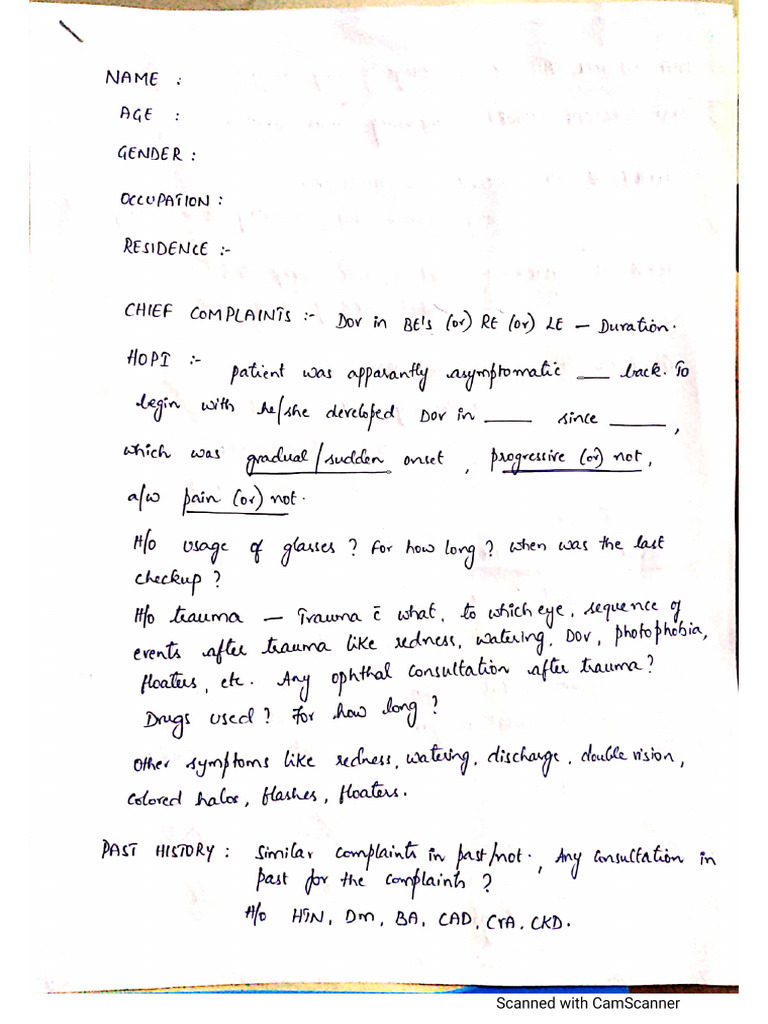 NAME :
AGE :
GENDER :
OCCUPATION :
RESIDENCE :-
CHIEF COMPLAINTS :- DOV in BE's (or) RE (or) LE – Duration.
HOPI :- patient was apparantly asymptomatic ___ back. To
begin with he/she developed DOV in ____ since ____,
which was gradual/sudden onset, progressive (or) not,
a/w pain (or) not.
H/o usage of glasses ? For how long ? when was the last
checkup ?
H/o trauma – Trauma c̄ what, to which eye, sequence of
events after trauma like redness, watering, DOV, photophobia,
floaters, etc. Any ophthal consultation after trauma ?
Drugs used ? For how long ?
Other symptoms like redness, watering, discharge, double vision,
colored halos, flashes, floaters.
PAST HISTORY : Similar complaints in past/not., Any consultation in
past for the complaints ?
H/o HTN, DM, BA, CAD, CVA, CKD.
Scanned with CamScanner